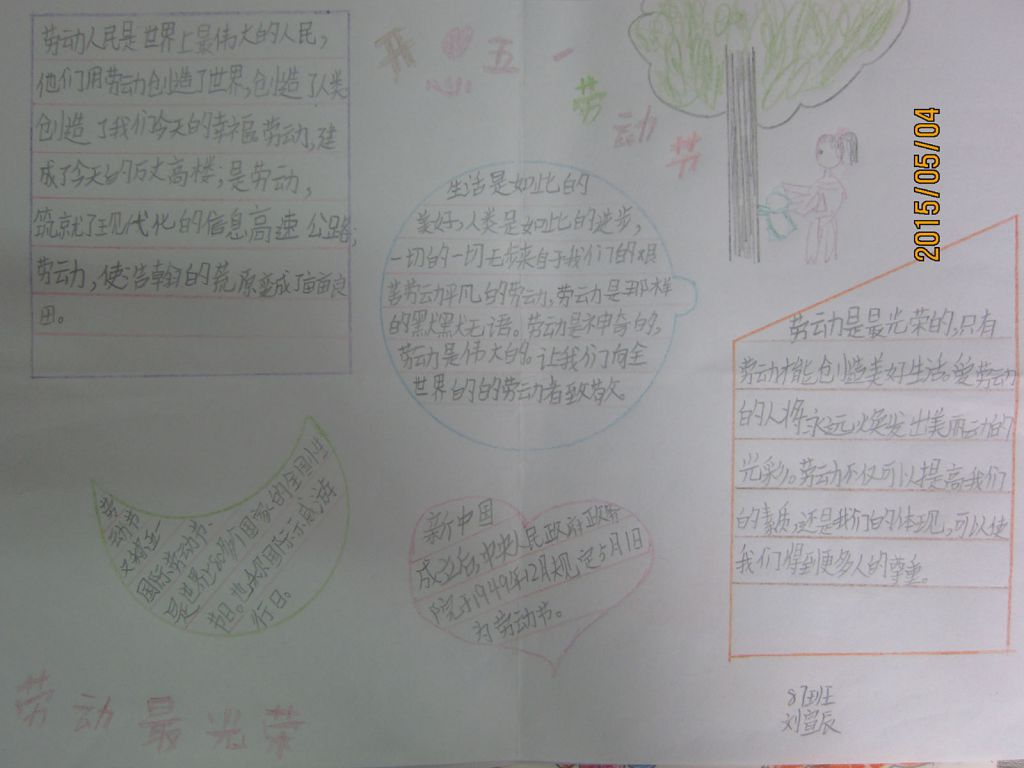 开心五一
劳动节
2015/05/04
劳动人民是世界上最伟大的人民，
他们用劳动创造了世界，创造了人类
创造了我们今天的幸福劳动，建
成了今天的万丈高楼；是劳动，
筑就了现代化的信息高速公路；
劳动，使浩翰的荒原变成了亩亩良
田。
生活是如此的
美好，人类是如此的进步，
一切的一切无不来自于我们的艰
苦劳动平凡的劳动，劳动是那样
的默默无语。劳动是神奇的，
劳动是伟大的。让我们向全
世界的的劳动者致敬。
劳动是最光荣的，只有
劳动才能创造美好生活。爱劳动
的人将永远焕发出美丽动的
光彩。劳动不仅可以提高我们
的素质，还是我们的体现，可以使
我们得到更多人的尊重。
劳动节
国际劳动节、
是世界上80多个国家的全国性
节日。
行日。
新中国
成立后，中央人民政府政务
院于1949年12月规定5月1日
为劳动节。
劳动最光荣
班
刘萱辰